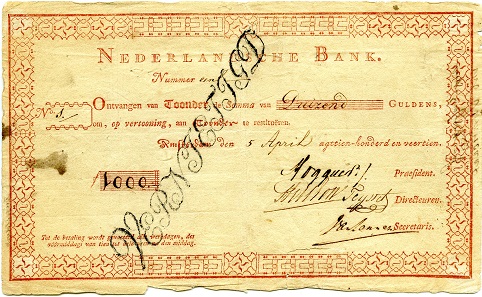 NEDERLANDSCHE BANK.
Nummer een
N°. 1.
Ontvangen van Toonder, de Somma van Duizend GULDENS,
om, op vertooning, aan Toonder te restitueren.
Amsterdam den 5 April agttien-honderd en veertien.
1000
Hogguer
Præsident.
Directeuren.
Secretaris.
Tot de betaling wordt gevaceerd alle werkdagen, des
VERNIETIGD